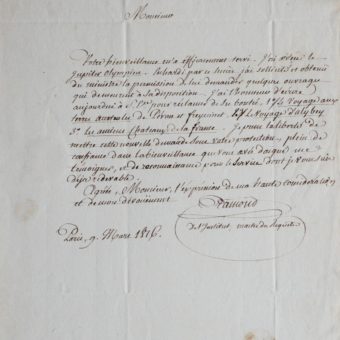 Monsieur
Votre bienveillance m'a efficacement servi. J'ai retiré le
Jupiter Olympien. Enhardi par ce succès j'ai sollicité et obtenu
du ministre la permission de lui demander quelques ouvrages
qui demeurent à sa disposition. J'ai l'honneur d'écrire
aujourd'hui à S. Exc. pour réclamer de sa bonté, 1° le Voyage aux
terres australes de Péron et Freycinet 2° le Voyage d'Aly bey
3° les anciens Châteaux de la france. Je prens la liberté de
mettre cette nouvelle demande sous votre protection, plein de
confiance dans la bienveillance que vous avez daigné me
témoigner, et de reconnaissance pour le service dont je vous suis
déjà redevable.
Agréez, Monsieur, l'expression de ma haute considération
et de mon dévouement.
Ramond
de l'Institut, maitre des Requêtes
Paris, 9. Mars 1816.